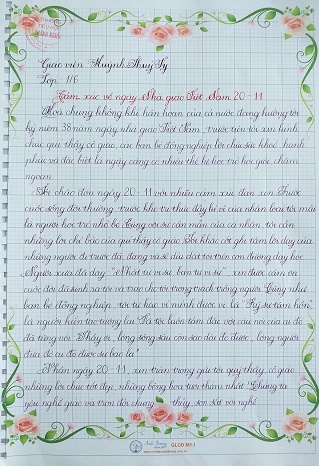 Giáo viên Huỳnh Thuý Vy
Lớp: 1/6
Cảm xúc về ngày Nhà giáo Việt Nam 20-11
Hoà chung không khí hân hoan của cả nước đang hướng tới
kỷ niệm 38 năm ngày nhà giáo Việt Nam, trước tiên tôi xin kính
chúc quý thầy cô giáo, các bạn bè đồng nghiệp lời chúc sức khoẻ, hạnh
phúc và đặc biệt là ngày càng có nhiều thế hệ học trò học giỏi, chăm
ngoan.
Tôi chào đón ngày 20-11 với nhiều cảm xúc đan xen. Trước
cuộc sống đời thường, trước kho tri thức đầy bí ẩn của nhân loại tôi mãi
là người học trò nhỏ bé. Cùng với sự cần mẫn của cá nhân, tôi cần
những lời chỉ bảo của quý thầy cô giáo. Tôi khắc cốt ghi tâm lời dạy của
những người đi trước đã, đang và sẽ dìu dắt tôi trên con đường dạy học.
Người xưa đã dạy "Nhất tự vi sư, bán tự vi sư", xin được cảm ơn
cuộc đời đã sinh ra tôi và trao cho tôi trọng trách trồng người. Cũng như
bạn bè đồng nghiệp, tôi tự hào vì mình được ví là "Kỹ sư tâm hồn",
là người kiến tạo tương lai. Và tôi luôn tâm đắc với câu nói của ai đó
đã từng nói: "Thầy ơi, lòng sông sâu con sào dài đo được, lòng người
đưa đò ai đo được sâu bao la".
Nhân ngày 20-11, xin trân trọng gửi tới quý thầy, cô giáo
những lời chúc tốt đẹp, những bông hoa tươi thắm nhất. Chúng ta
yêu nghề giáo và trọn đời chung thuỷ, son sắt với nghề.
GLCD M5.1